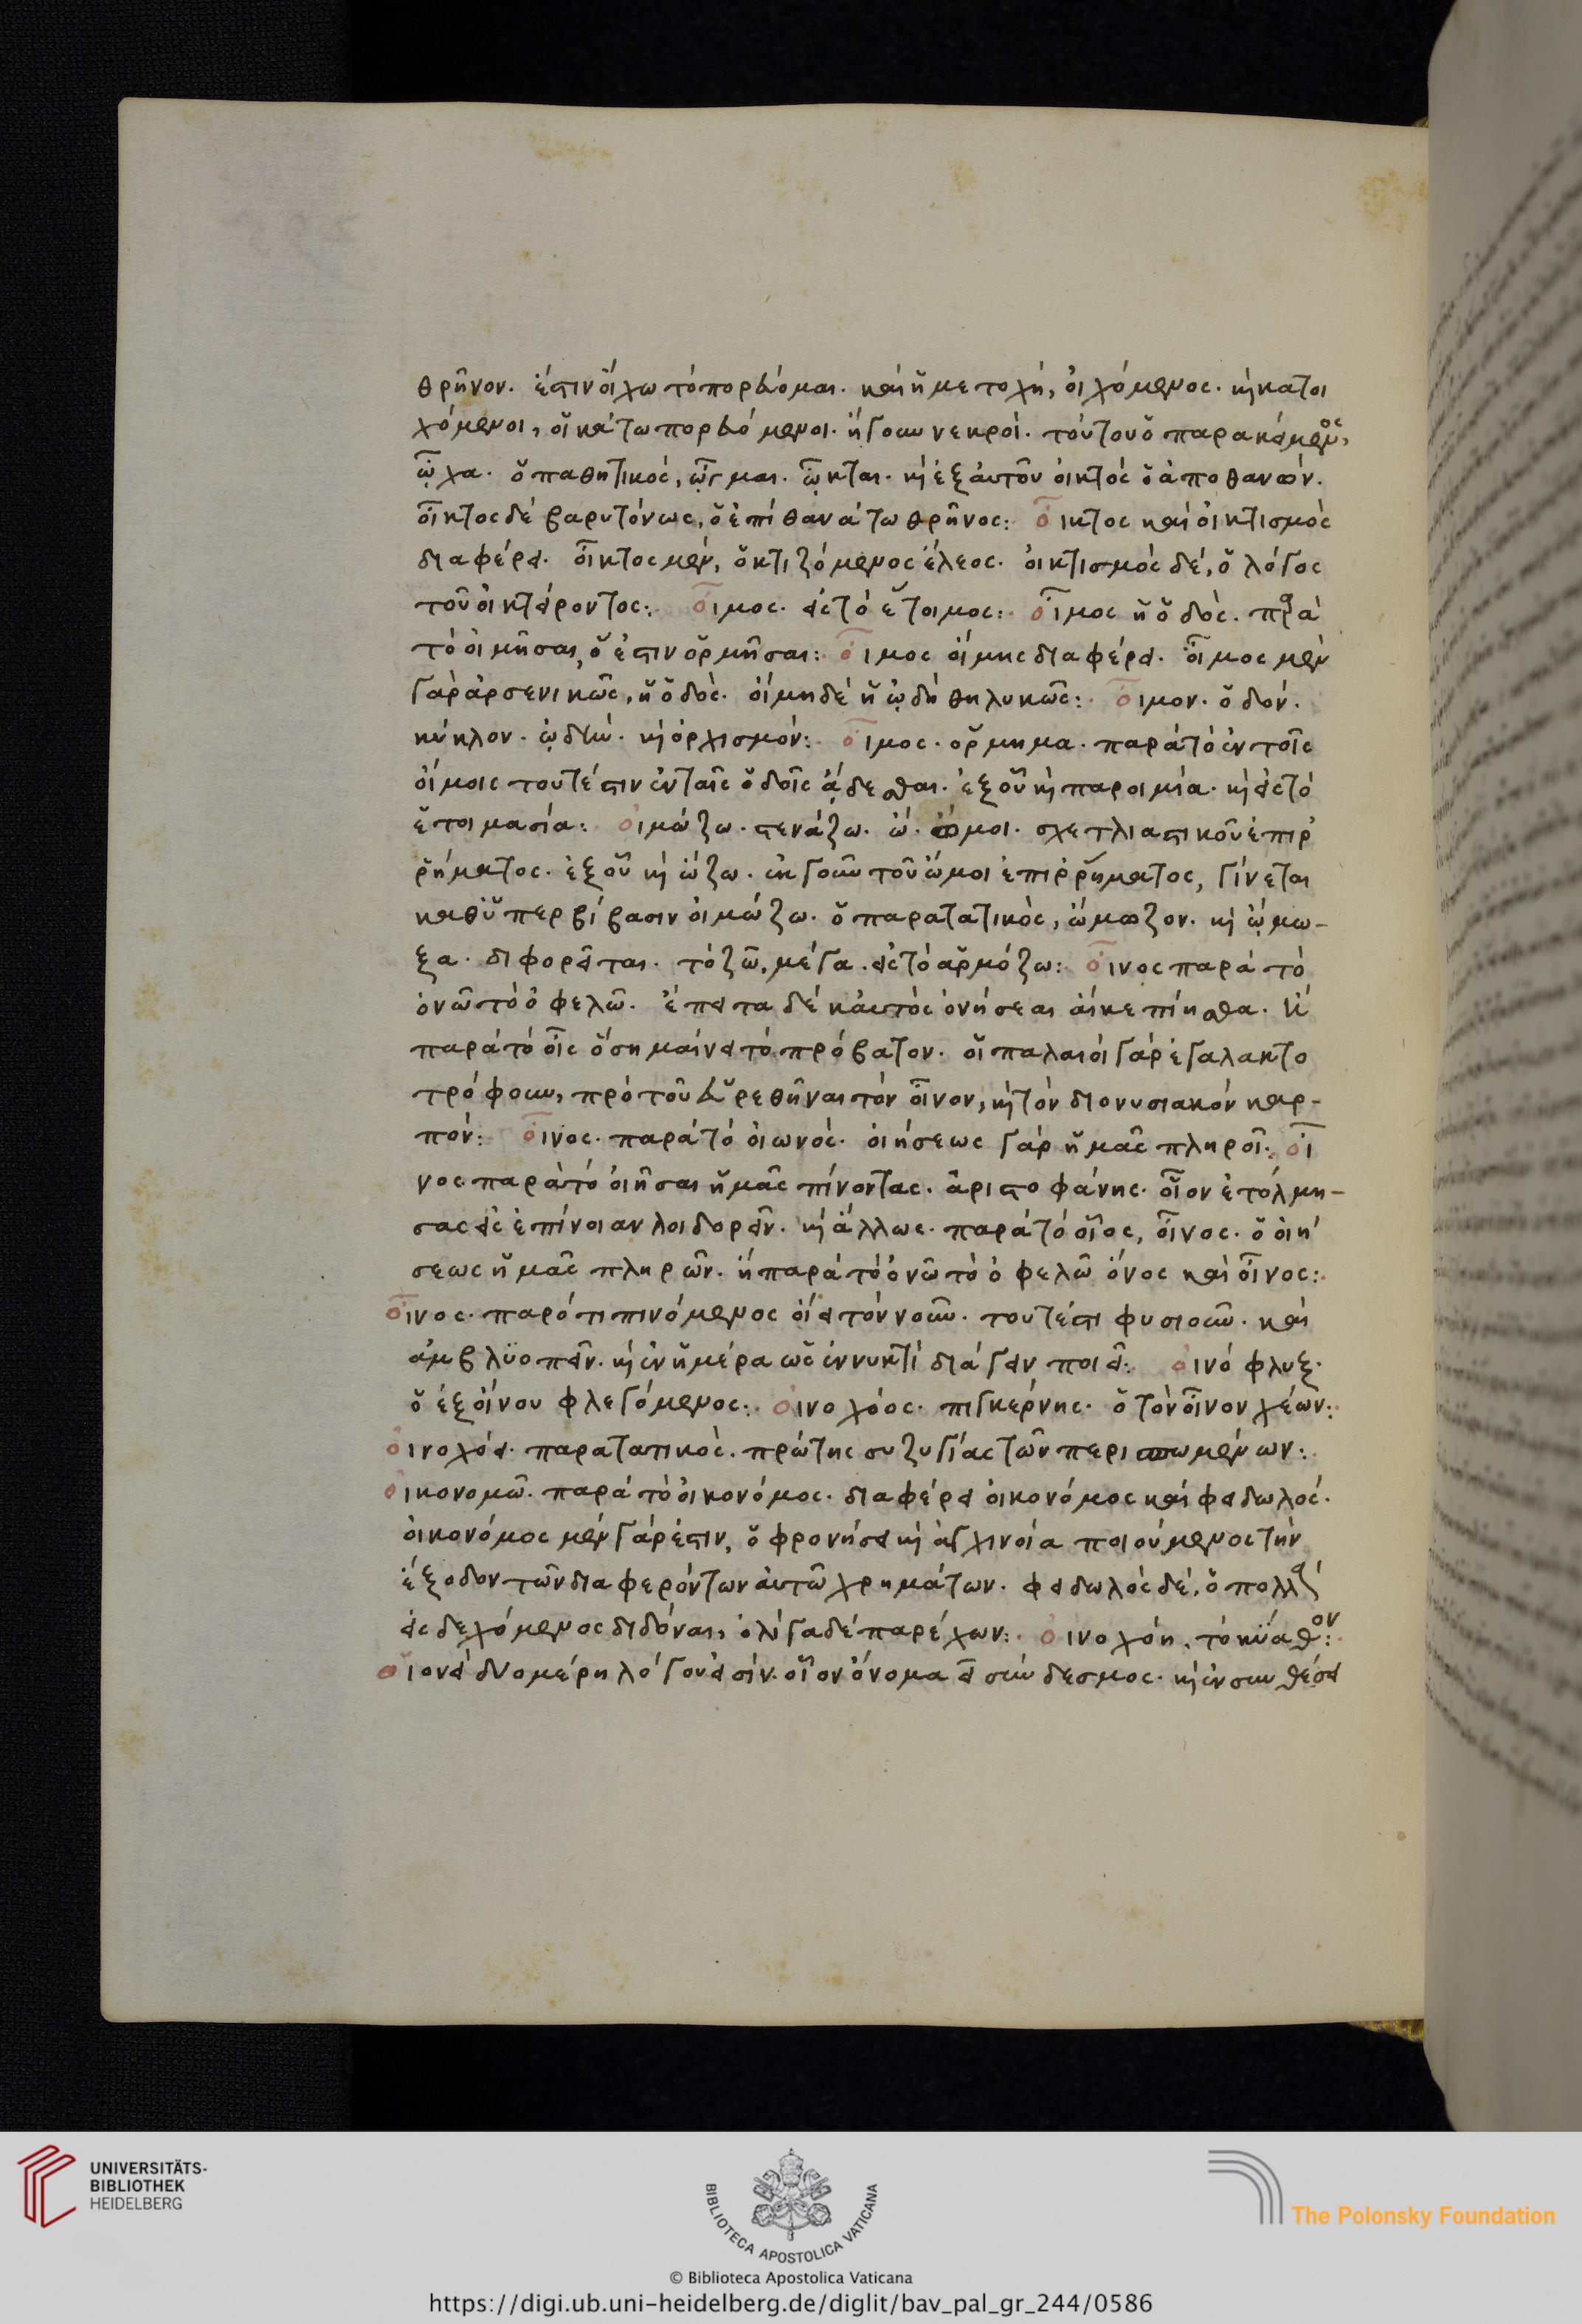 θρῆνον. ἔστιν οἴχω τὸ πορεύομαι. καὶ ἡ μετοχὴ, οἰχόμενος. καὶ κατοι
χόμενοι, οἱ κάτω πορευόμενοι. ἤγουν νεκροί. τούτου ὁ παρακείμενος,
ᾦχα. ὁ παθητικὸς, ᾦγμαι. ᾦκται. καὶ ἐξ αὐτοῦ οἰκτὸς ὁ ἀποθανών.
οἶκτος δὲ βαρυτόνως, ὁ ἐπὶ θανάτω θρῆνος: οἶκτος καὶ οἰκτισμὸς
διαφέρει. οἶκτος μὲν, ὁ κτιζόμενος ἔλεος. οἰκτισμὸς δὲ, ὁ λόγος
τοῦ οἰκτείροντος: οἶμος. εἰς τὸ ἕτοιμος: οἶμος ἡ ὁδὸς. παρὰ
τὸ οἰμῆσαι, ὅ ἐστιν ὁρμῆσαι: οἶμος οἴμης διαφέρει. οἶμος μὲν
γὰρ ἀρσενικῶς, ἡ ὁδὸς. οἴμη δὲ ἡ ᾠδὴ θηλυκῶς: οἶμον. ὁδόν.
κύκλον. ᾠδὴν. καὶ ὀρχισμόν: οἶμος. ὅρμημα. παρὰ τὸ ἐν τοῖς
οἴμοις τουτέστιν ἐν ταῖς ὁδοῖς ἄδεσθαι. ἐξ οὗ καὶ παροιμία. καὶ εἰς τὸ
ἑτοιμασία: οἰμώζω. στενάζω. ὤ. ὤμοι. σχετλιαστικοῦ ἐπιρ
ρήματος. ἐξ οὗ καὶ ὤζω. ἐκ γοῦν τοῦ ὤμοι ἐπιρρήματος, γίνεται
καθ᾽ ὑπερβίβασιν οἰμώζω. ὁ παρατατικὸς, ὤμωζον. καὶ ᾤμω-
ξα. διφορεῖται. τὸ ζω, μέγα. εἰς τὸ ἁρμόζω: οἶνος παρὰ τὸ
ὀνῶ τὸ ὀφελῶ. ἔπειτα δὲ κ᾽ αὐτὸς ὀνήσεαι αἴκε πίησθα. ἢ
παρὰ τὸ οἶς ὃ σημαίνει τὸ πρόβατον. οἱ παλαιοὶ γὰρ ἐγαλακτο
τρόφουν, πρὸ τοῦ εὑρεθῆναι τὸν οἶνον, καὶ τὸν διονυσιακὸν καρ-
πόν: οἶνος. παρὰ τὸ οἰωνός. οἰήσεως γὰρ ἡμᾶς πληροῖ: οἶ
νος παρὰ τὸ οἰῆσαι ἡμᾶς πίνοντας. ἀριστοφάνης. οἶον ἐτόλμη-
σας εἰς ἐπίνοιαν λοιδορεῖν. καὶ ἄλλως. παρὰ τὸ οἶος, οἶνος. ὁ οἰή
σεως ἡμᾶς πληρῶν. ἢ παρὰ τὸ ὀνῶ τὸ ὀφελῶ ὄνος καὶ οἶνος:
οἶνος. παρ᾽ ὅτι πινόμενος οἴει τὸν νοῦν. τουτέστι φυσιοῦν. καὶ
ἀμβλϋοπεῖν. καὶ ἐν ἡμέρα ὡς ἐν νυκτὶ διάγειν ποιεῖ: οἰνόφλυξ.
ὁ ἐξ οἴνου φλεγόμενος: οἰνοχόος. πιγκέρνης. ὁ τὸν οἶνον χέων:
οἰνοχόει. παρατατικὸς. πρώτης συζυγίας τῶν περισπωμένων:
οἰκονομῶ. παρὰ τὸ οἰκονόμος. διαφέρει οἰκονόμος καὶ φειδωλός.
οἰκονόμος μὲν γάρ ἐστιν, ὁ φρονήσει καὶ ἀγχινοία ποιούμενος τὴν
ἔξοδον τῶν διαφερόντων αὐτῶ χρημάτων. φειδωλὸς δὲ, ὁ πολλὰ
εἰσδεχόμενος διδόναι, ὀλίγα δὲ παρέχων: οἰνοχόη. τὸ κύαθον:
οἱονεὶ δύο μέρη λόγου εἰσίν. οἷον ὄνομα εἶ σύνδεσμος. καὶ ἐν συνθέσει
UNIVERSITÄTS-
BIBLIOTHEK
HEIDELBERG
BIBLIOTECA APOSTOLICA VATICANA
The Polonsky Foundation
© Biblioteca Apostolica Vaticana
https://digi.ub.uni-heidelberg.de/diglit/bav_pal_gr_244/0586